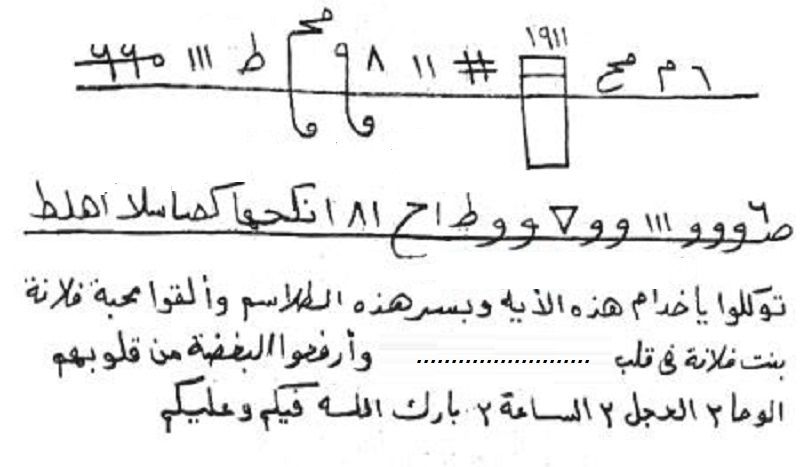 ١٩١١
٦ م مح # ١١ ٨ و مح ط ااا
ص ووو ااا وو ▽ وو ط ا ح ٨١ ا نكحها كصا سلا اهلط
توكلوا يا خدام هذه الأيه وبسر هذه الطلاسم وألقوا محبة فلانة
بنت فلانة في قلب ........................ وأرفعوا البغضة من قلوبهم
الوحا ٢ العجل ٢ الساعة ٢ بارك الله فيكم وعليكم